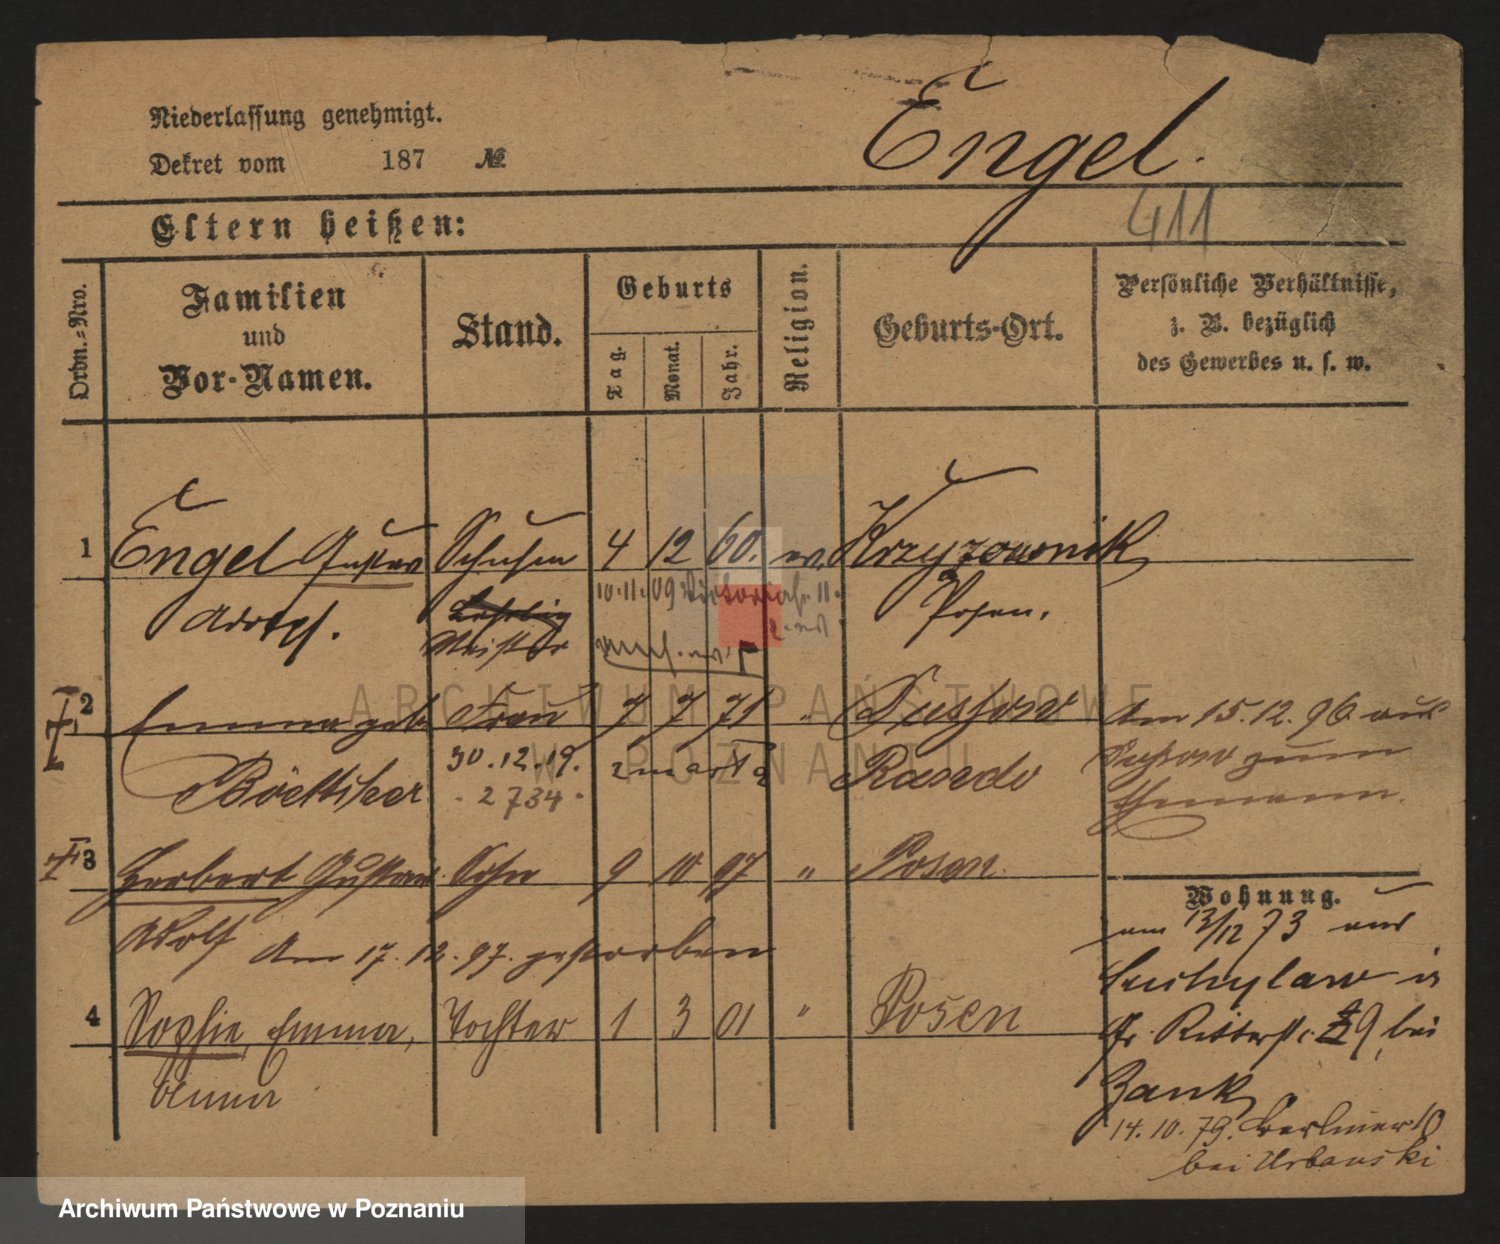 Niederlassung genehmigt.
Engel.
Dekret vom 187 №
411
Eltern heißen:
Ordn.=Nro.
Familien
und
Vor-Namen.
Stand.
Geburts
Tag.
Monat.
Jahr.
Religion.
Geburts-Ort.
Persönliche Verhältnisse,
z. B. bezüglich
des Gewerbes u. s. w.
1 Engel Gustav Schuhm 4 12 60. ev. Krzyzownik
10.11.09 11.
Adolf. Meister Posen.
2 Emma geb. Frau 7 7 71 " Dussow Am 15.12.96 aus
Böttiker 30.12.19. Dussow zum
2734 Ehemann.
3 Herbert Gustav Sohn 9 10 97 " Posen.
Wohnung.
Adolf Am 17.12.97. gestorben
am 13/12 73 aus
4 Sophie, Emma, Tochter 1 3 01 " Posen
Gr. Ritterstr. 9, bei
Anna
Zank
14.10.79. Berliner 10
bei Urbanski
ARCHIWUM PAŃSTWOWE
W POZNANIU
Archiwum Państwowe w Poznaniu